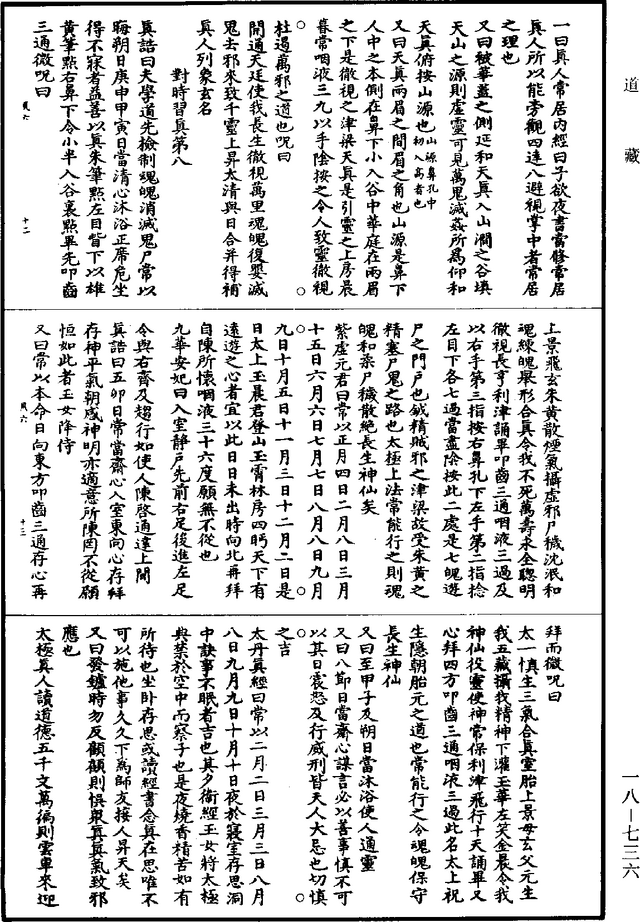 道藏
一曰真人常居内經曰子欲夜書當修常居
真人所以能旁觀四達八遐視掌中者常居
之理也
又曰被華蓋之側延和天真入山澗之谷填
天山之源則虛靈可見萬鬼滅姦所爲仰和
天真俯按山源也山源鼻孔中初入高者也
又曰天真兩眉之間眉之角也山源是鼻下
人中之本側在鼻下小入谷中華庭在兩眉
之下是徹視之津梁天真是引靈之上房晨
暮常咽液三九以手陰按之令人致靈徹視
杜遏萬邪之道也呪曰
開通天廷使我長生徹視萬里魂魄復嬰滅
鬼去邪來致千靈上昇太清與日合并得補
真人列象玄名
對時習真第八
真誥曰夫學道先檢制魂魄消滅鬼尸常以
晦朔日庚申甲寅日當清心沐浴正席危坐
得不寐者益善以真朱筆點左目眥下以雄
黄筆點右鼻下令小半入谷裏點畢先叩齒
三通微呪曰
上景飛玄朱黄散煙氣攝虛邪尸穢沈泯和
魂練魄舉形合真令我不死萬壽永全聰明
徹視長亨利津誦畢叩齒三通咽液三過及
以右手第三指按右鼻孔下左手第二指捻
左目下各七過當盡陰按此二處是七魄遊
尸之門戶也鉞精賊邪之津梁故受朱黄之
精塞尸鬼之路也太極上法常能行之則魂
魄和柔尸穢散絶長生神仙矣
紫虛元君曰常以正月四日二月八日三月
十五日六月六日七月七日八月八日九月
九日十月五日十一月三日十二月二日是
日太上玉晨君登山玉霄林房四眄天下有
遠遊之心者宜以此日日未出時向北再拜
自陳所懷咽液三十六度願無不從也
九華安妃曰入室靜戶先前右足後進左足
令與右齊及趨行如使人陳啓通達上聞
真誥曰五卯日常當齋心入室東向心存拜
存神平氣朝感神明亦適意所陳罔不從願
恒如此者玉女降侍
又曰常以本命日向東方叩齒三通存心再
拜而微呪曰
太一慎生三氣合真室胎上景母玄父元生
我五藏攝我精神下灌玉華左笑金晨令我
神仙役靈使神常保利津飛行十天誦畢又
心拜四方叩齒三通咽液三過此名太上祝
生隱朝胎元之道也常能行之令魂魄保守
長生神仙
又曰至甲子及朔日當沐浴使人通靈
又曰八節日當齋心謙言必以善事慎不可
以其日震怒及行威刑皆天人大忌也切慎
之吉
太丹真經曰常以二月二日三月三日八月
八日九月九日十月十日夜於寢室存思洞
中訣事不眠者吉也其夕衞經玉女將太極
典禁於空中而察子也是夜燒香精苦如有
所待也坐卧存思或讀經書念真在思唯不
可以施他事久久下爲師友接人昇天矣
又曰發鑪時勿反顧顧則忤衆真真氣致邪
應也
太極真人讀道德五千文萬徧則雲車來迎
一八—七三六